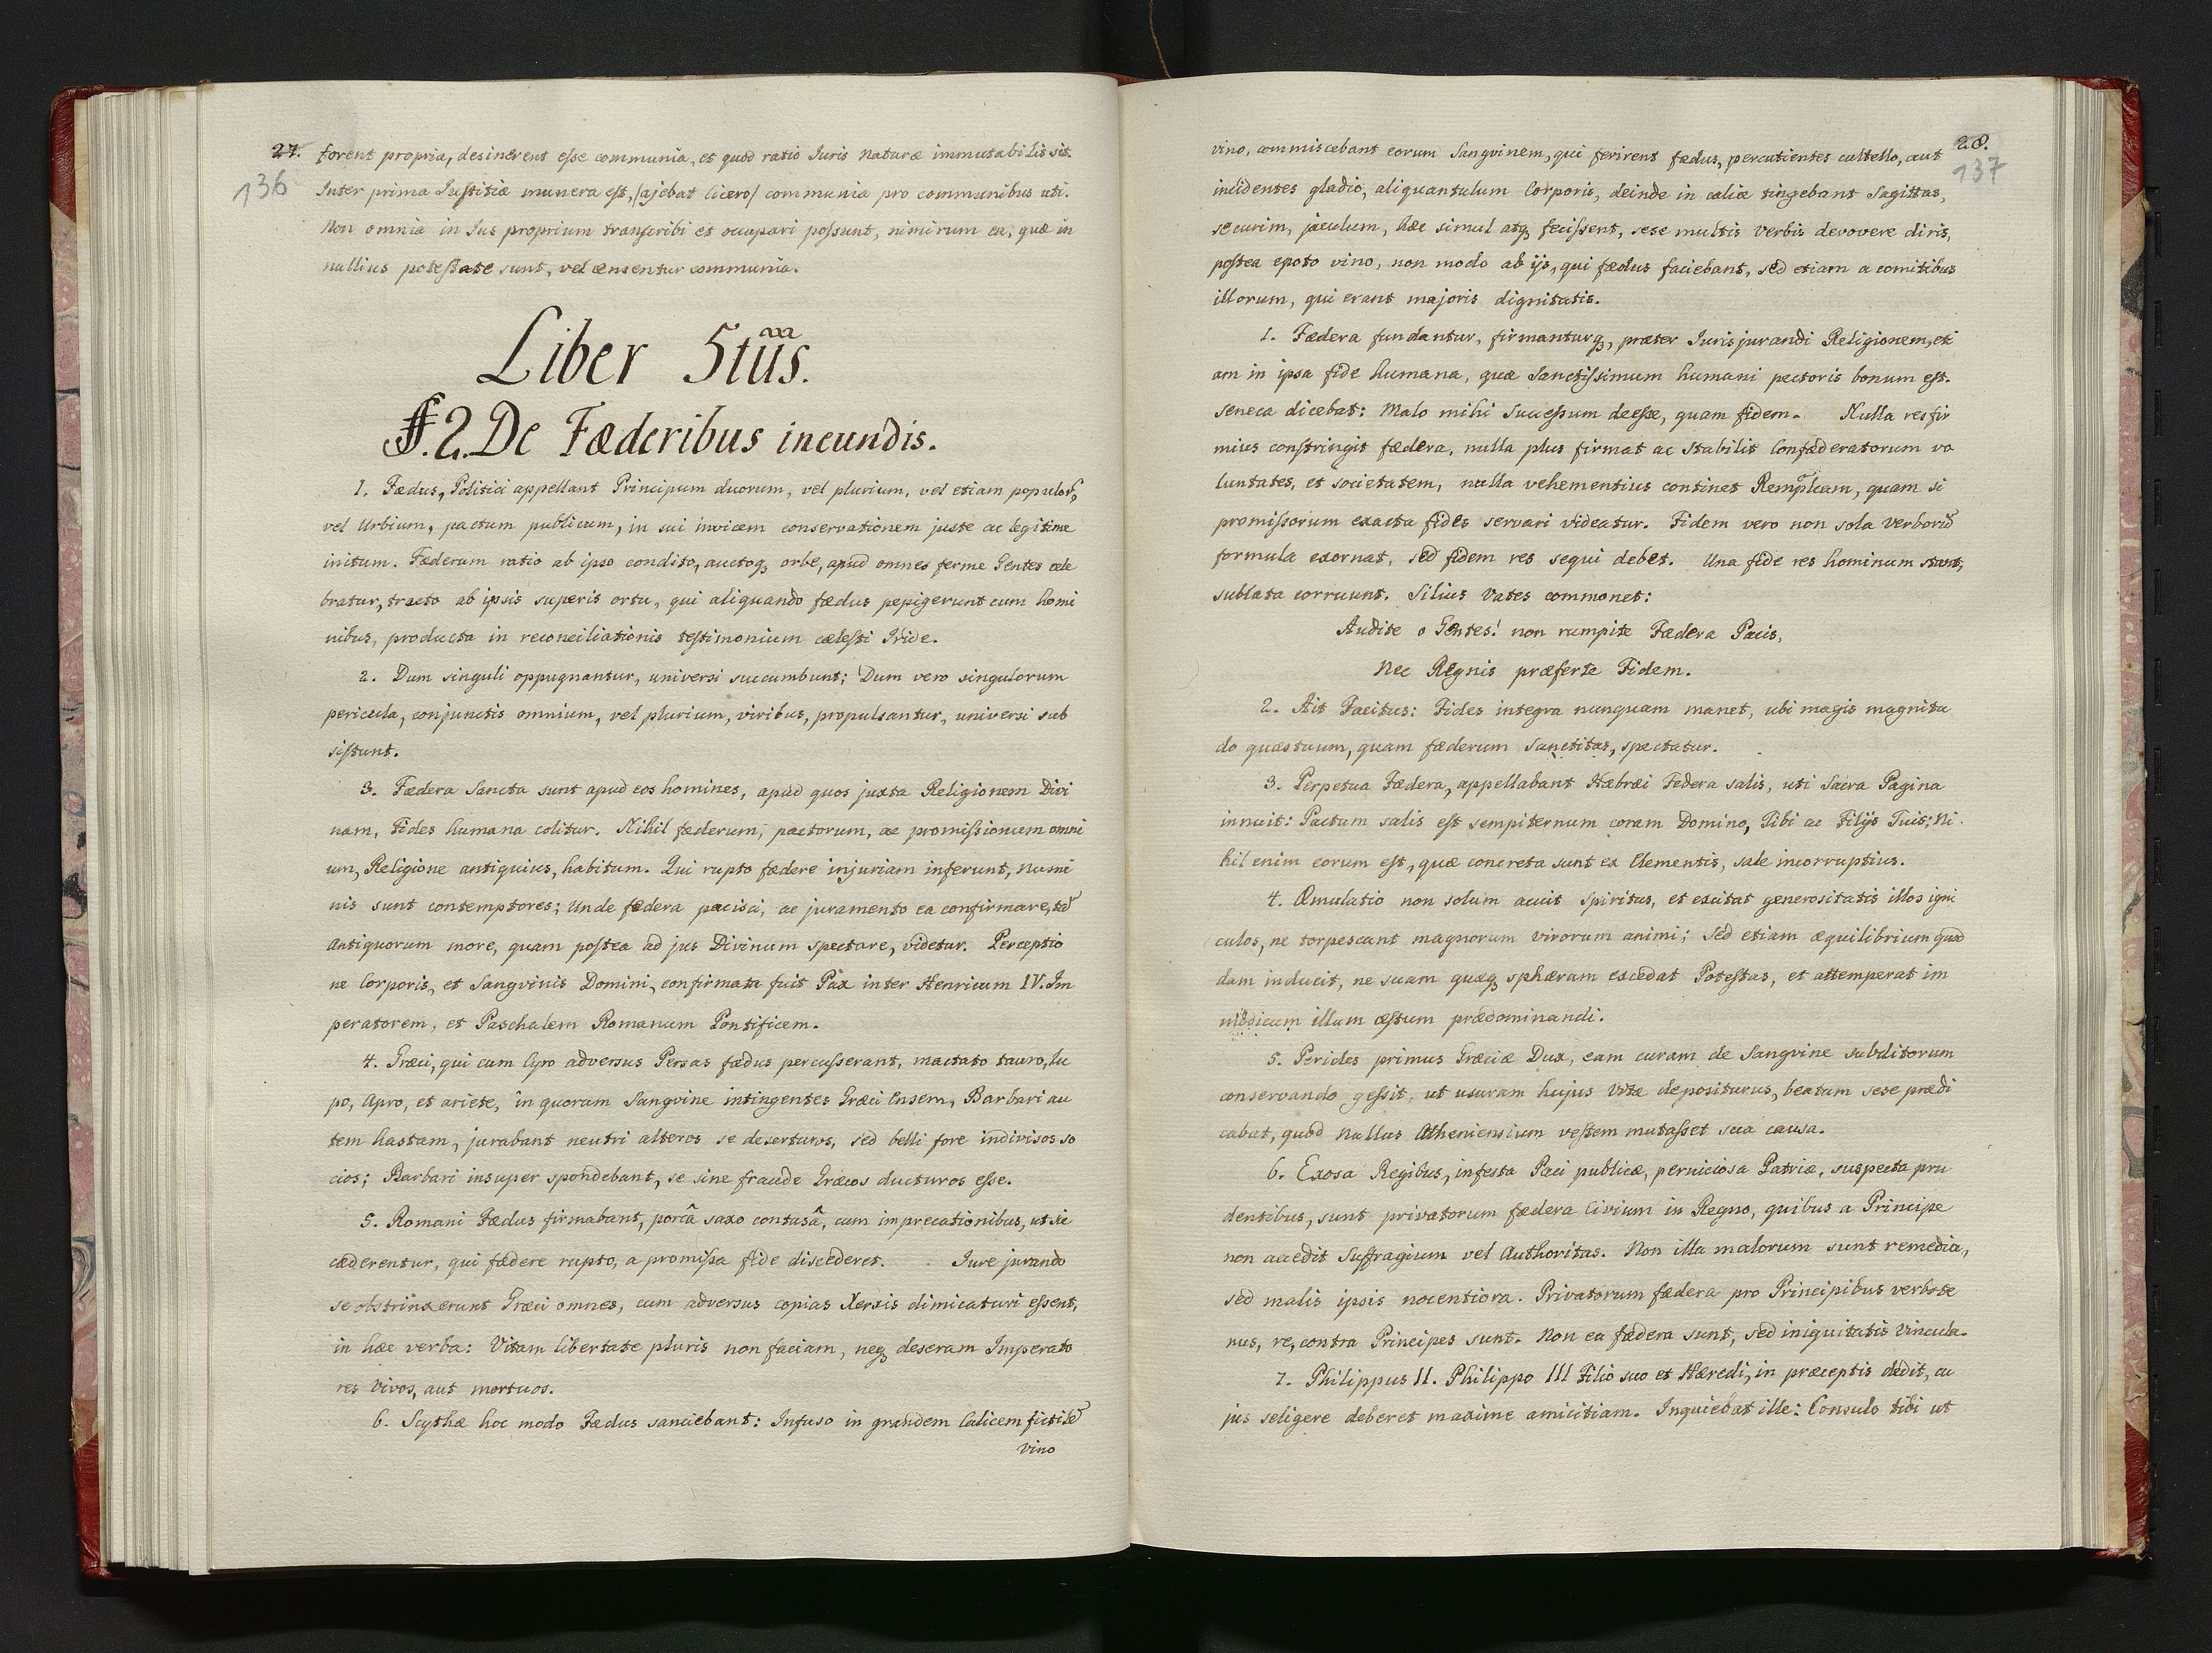 27.
136
forent propria, desinerent esse communia, et quod ratio Iuris Naturæ immutabilis sit.
Inter prima Justitiæ munera est, /ajebat Cicero/ communia pro communibus uti.
Non omnia in Ius proprium transcribi et occupari possunt, nimirum ea, quæ in
nullius potestate sunt, vel censentur communia.
Liber 5tus.
§. 2. De Fæderibus incundis.
1. Fædus, Politici appellant Principum duorum, vel plurium, vel etiam populor̃,
vel Urbium, pactum publicum, in sui invicem conservationem juste ac legitime
initum. Fæderum ratio ab ipso condito, auctoq₃ orbe, apud omnes ferme Gentes cele
bratur, tracto ab ipsis superis ortu, qui aliquando fædus pepigerunt cum homi
nibus, producta in reconciliationis testimonium cælesti Iride.
2. Dum singuli oppugnantur, universi succumbunt; Dum vero singulorum
pericula, conjunctis omnium, vel plurium, viribus, propulsantur, universi sub
sistunt.
3. Fædera Sancta sunt apud eos homines, apud quos juxta Religionem Divi
nam, Fides humana colitur. Nihil fæderum, pactorum, ac promissionum omni
um, Religione antiquius, habitum. Qui rupto fædere injuriam inferunt, Numi
nis sunt contemptores; Unde fædera pacisci, ac juramento ea confirmare, tã
Antiquorum more, quam postea ad jus Divinum spectare, videtur. Perceptio
ne Corporis, et Sangvinis Domini, confirmata fuit Pax inter Henricum IV. Im
peratorem, et Paschalem Romanum Pontificem.
4. Græci, qui cum Cyro adversus Persas fædus percusserant, mactato tauro, lu
po, Apro, et ariete, in quorum Sangvine intingentes Græci Ensem, Barbari au
tem hastam, jurabant neutri alteros se deserturos, sed belli fore indivisos so
cios; Barbari insuper spondebant, se sine fraude Græcos ducturos esse.
5. Romani Fædus firmabant, porcâ saxo contusâ, cum imprecationibus, ut sic
cæderentur, qui fædere rupto, a promissa fide discederet. Iure jurando
se obstrinxerunt Græci omnes, cum adversus copias Xerxis dimicaturi essent,
in hæc verba: Vitam libertate pluris non faciam, neq₃ deseram Imperato
res vivos, aut mortuos.
6. Scythæ hoc modo Fædus sanciebant: Infuso in grandem Calicem fictilẽ
vino
28.
137
vino, commiscebant eorum Sangvinem, qui ferirent fædus, percutientes cultello, aut
incidentes gladio, aliquantulum Corporis, deinde in calice tingebant Sagittas,
securim, jaculum, hæc simul atq₃ fecissent, sese multis verbis devovere diris,
postea epoto vino, non modo ab ijs, qui fædus faciebant, sed etiam a comitibus
illorum, qui erant majoris dignitatis.
1. Fædera fundantur, firmanturq₃, præter Jurisjurandi Religionem, eti
am in ipsa fide humana, quæ Sanctissimum humani pectoris bonum est.
Seneca dicebat: Malo mihi Successum deesse, quam fidem. Nulla res fir
mius constringit fædera, nulla plus firmat ac Stabilit Confæderatorum vo
luntates, et societatem, nulla vehementius continet Rempłcam, quam si
promissorum exacta fides servari videatur. Fidem vero non sola verborũ
formula exornat, sed fidem res sequi debet. Una fide res hominum stant,
sublata corruunt. Silius Vates commonet:
Audite o Gentes! non rumpite Fædera Pacis,
Nec Regnis præferte Fidem.
2. Ait Tacitus: Fides integra nunquam manet, ubi magis magnitu
do quæstuum, quam fæderum Sanctitas, spectatur.
3. Perpetua Fædera, appellabant Hæbræi Federa salis, uti Sacra Pagina
innuit: Pactum salis est sempiternum coram Domino, Tibi ac Filijs Tuis; Ni
hil enim eorum est, quæ concreta sunt ex Elementis, sale incorruptius.
4. Æmulatio non solum acuit Spiritus, et excitat generositatis illos igni
culos, ne torpescant magnorum virorum animi; sed etiam æquilibrium quod
dam inducit, ne suam quæq₃ sphæram excedat Potestas, et attemperat im
modicum illum æstum prædominandi.
5. Pericles primus Græciæ Dux, eam curam de Sangvine subditorum
conservando gessit, ut usuram hujus Vitæ depositurus, beatum sese prædi
cabat, quod Nullus Atheniensium vestem mutasset sua causa.
6. Exosa Regibus, infesta Paci publicæ, perniciosa Patriæ, suspecta pru
dentibus, sunt privatorum fædera Civium in Regno, quibus a Principe
non accedit Suffragium vel Authoritas. Non illa malorum sunt remedia,
sed malis ipsis nocentiora. Privatorum fædera pro Principibus verbote
nus, re, contra Principes sunt. Non ea fædera sunt, sed iniquitatis Vincula.
7. Philippus II. Philippo III Filio suo et Hæredi, in præceptis dedit, cu
jus seligere deberet maxime amicitiam. Inquiebat ille: Consulo tibi ut